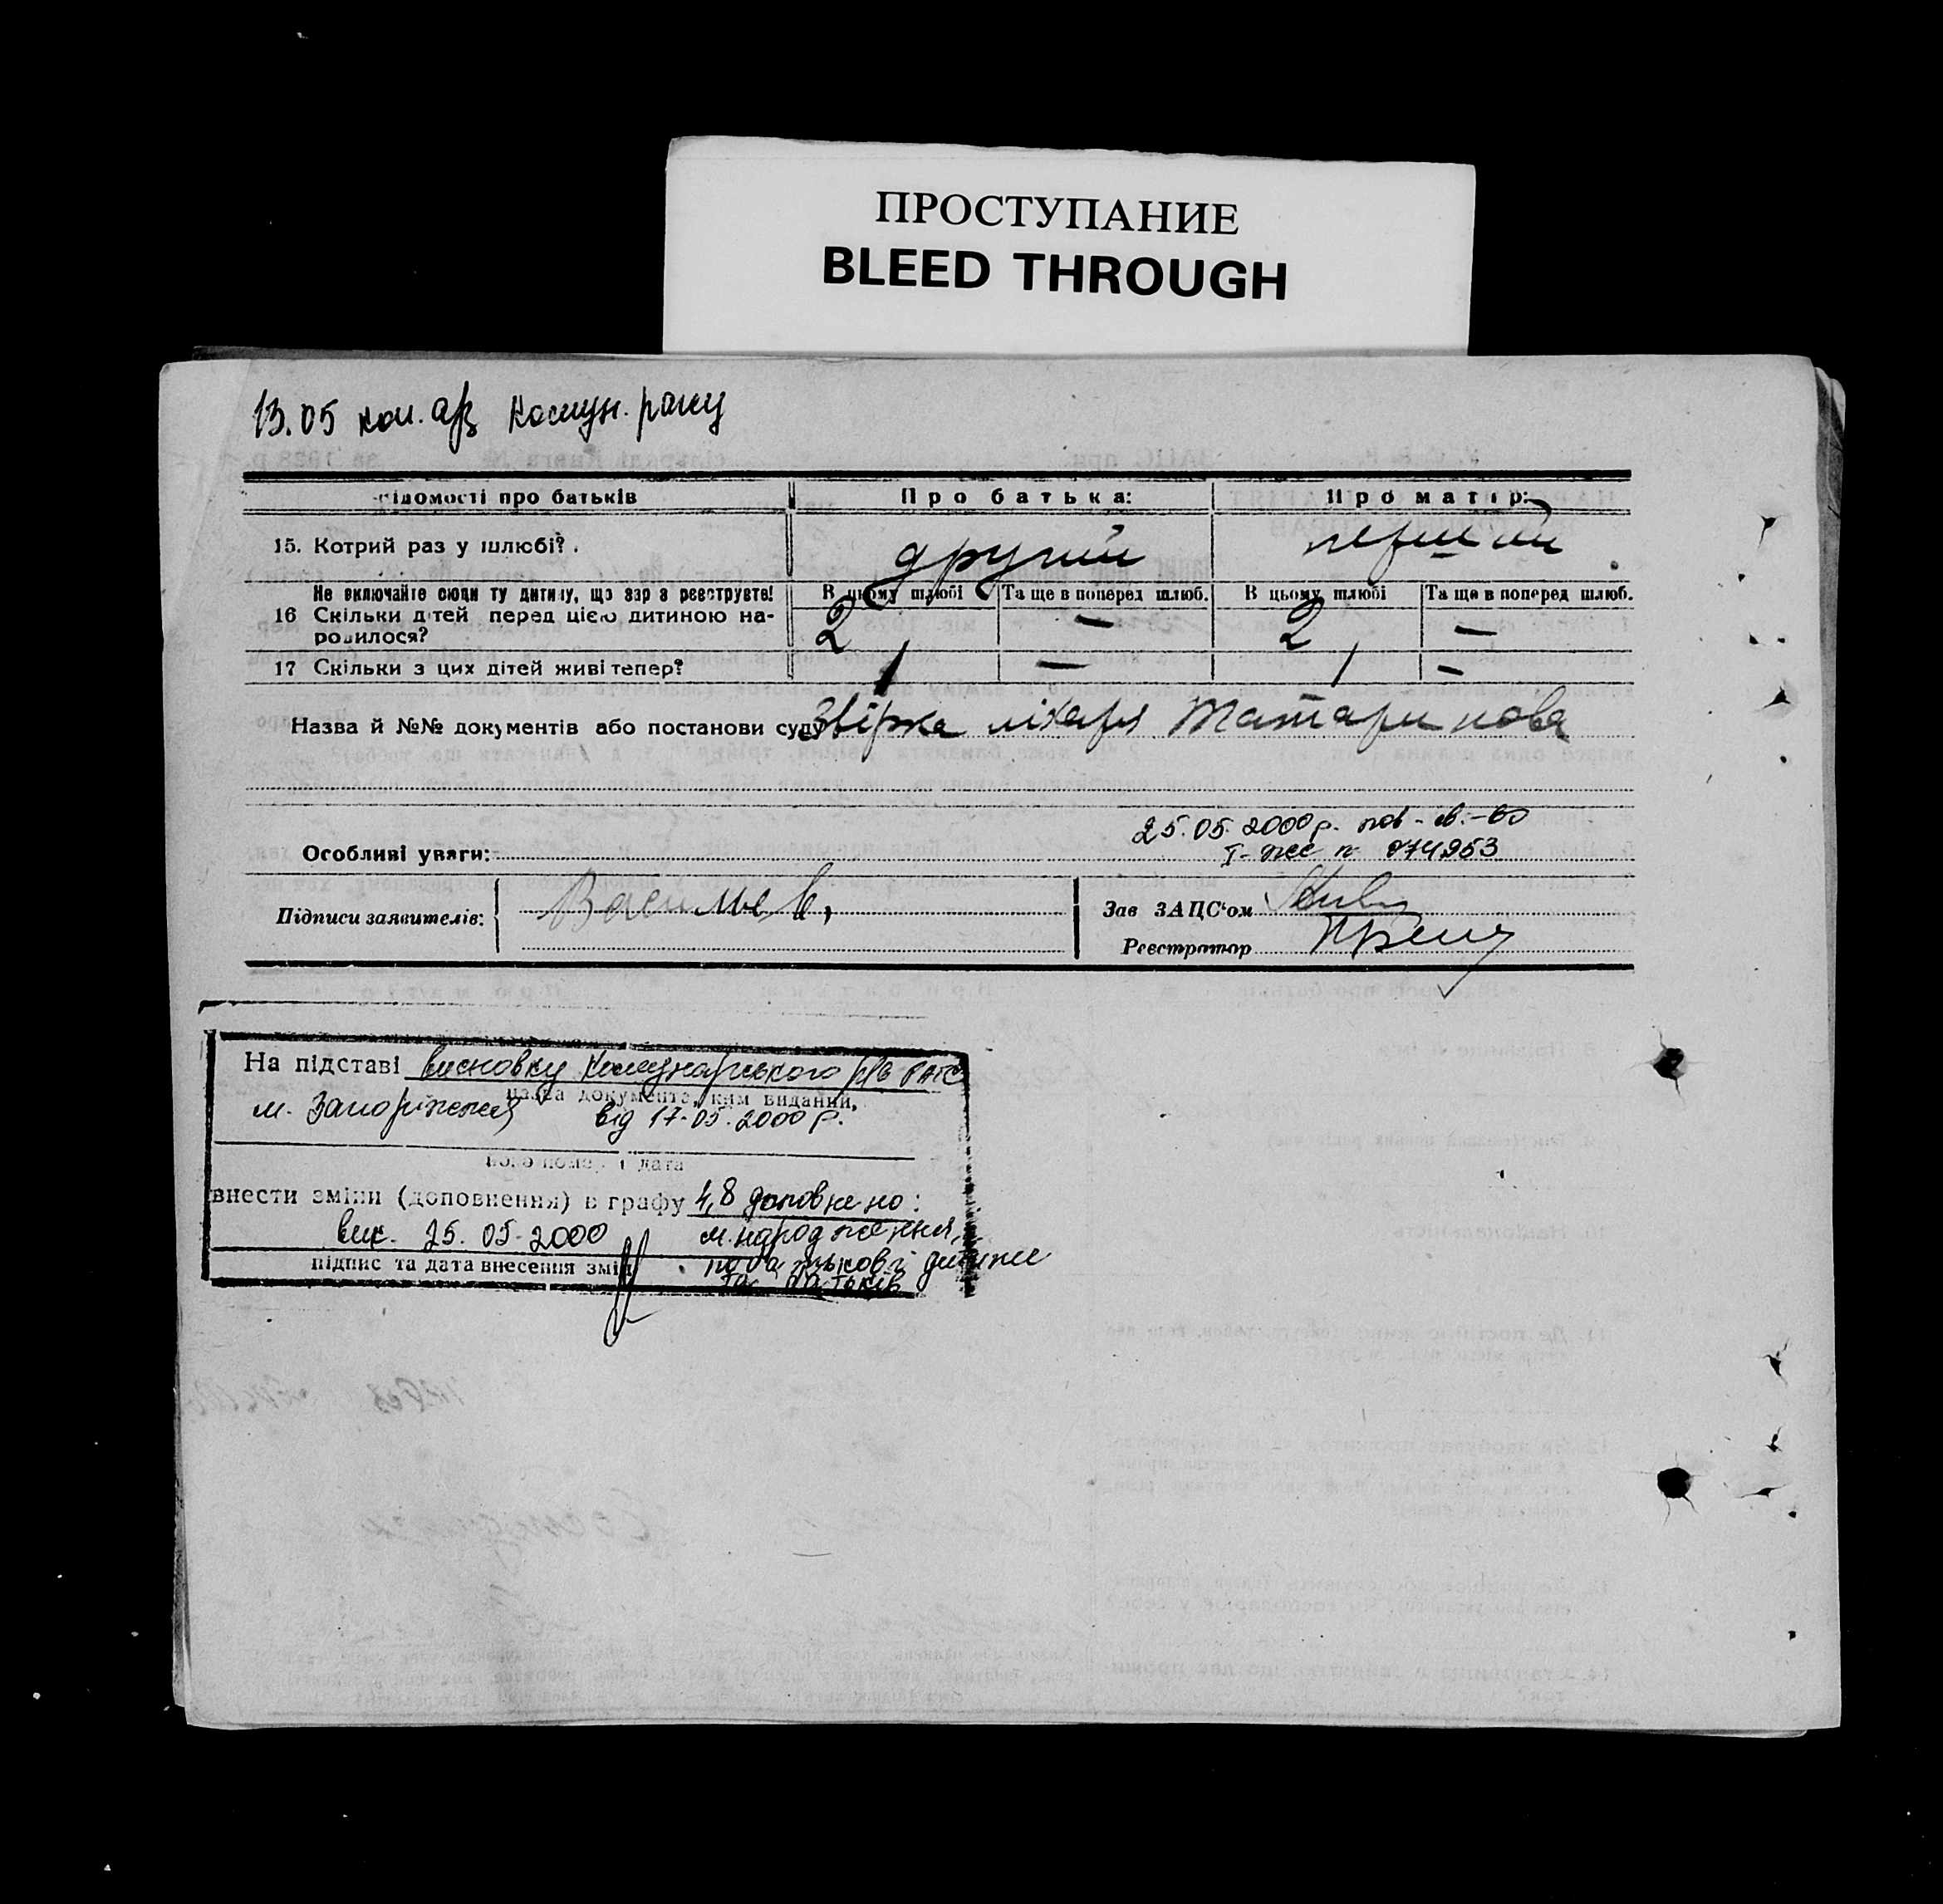 ПРОСТУПАНИЕ
BLEED THROUGH
13.05 коп. а/з комун. рагсу
відомості про батьків Про батька: Про матір:
15. Котрий раз у шлюбі? другий перший
Не включайте сюди ту дитину, що зараз реєструєте! В цьому шлюбі Та ще в поперед шлюб. В цьому шлюбі Та ще в поперед шлюб.
16 Скільки дітей перед цією дитиною на- 2 — 2 —
родилося?
17 Скільки з цих дітей живі тепер? 1 — 1 —
Назва й №№ документів або постанови суду Звірка лікаря Татаринова
25.05.2000 р. пов-св.-во
Особливі уваги: І-жс n 074953
Підписи заявителів: Васильев, Зав ЗАЦС'ом
Реєстратор
На підставі висновку Комунарського р/в РАГС
назва документа, ким виданий,
м. Запоріжжя від 17.05.2000 р.
його номер і дата
внести зміни (доповнення) в графу 4,8 доповнено:
вик. 25.05.2000 м. народження,
підпис та дата внесення змін по батькові дитини
та батьків